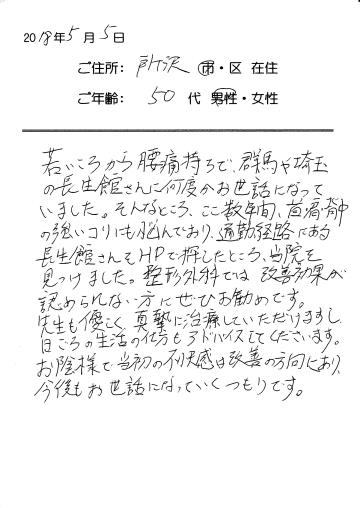 2018年5月5日
ご住所: 所沢 市・区 在住
ご年齢: 50 代 男性・女性
若いころから腰痛持ちで、群馬や埼玉
の長生館さんに何度かお世話になって
いました。そんなところ、ここ数年間、首痛・背中
の強いコリにも悩んでおり、通勤経路にある
長生館さんをHPで探したところ、当院を
見つけました。整形外科では改善効果が
認められない方にぜひお勧めです。
先生も優しく、真摯に治療していただけますし、
日ごろの生活の仕方もアドバイスしてくださいます。
お陰様で当初の不快感は改善の方向にあり、
今後もお世話になっていくつもりです。